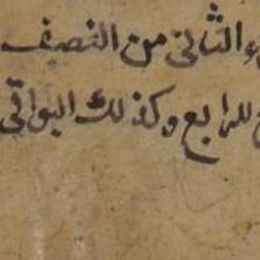 الثانى من النصف
للرابع وكذلك البواقى